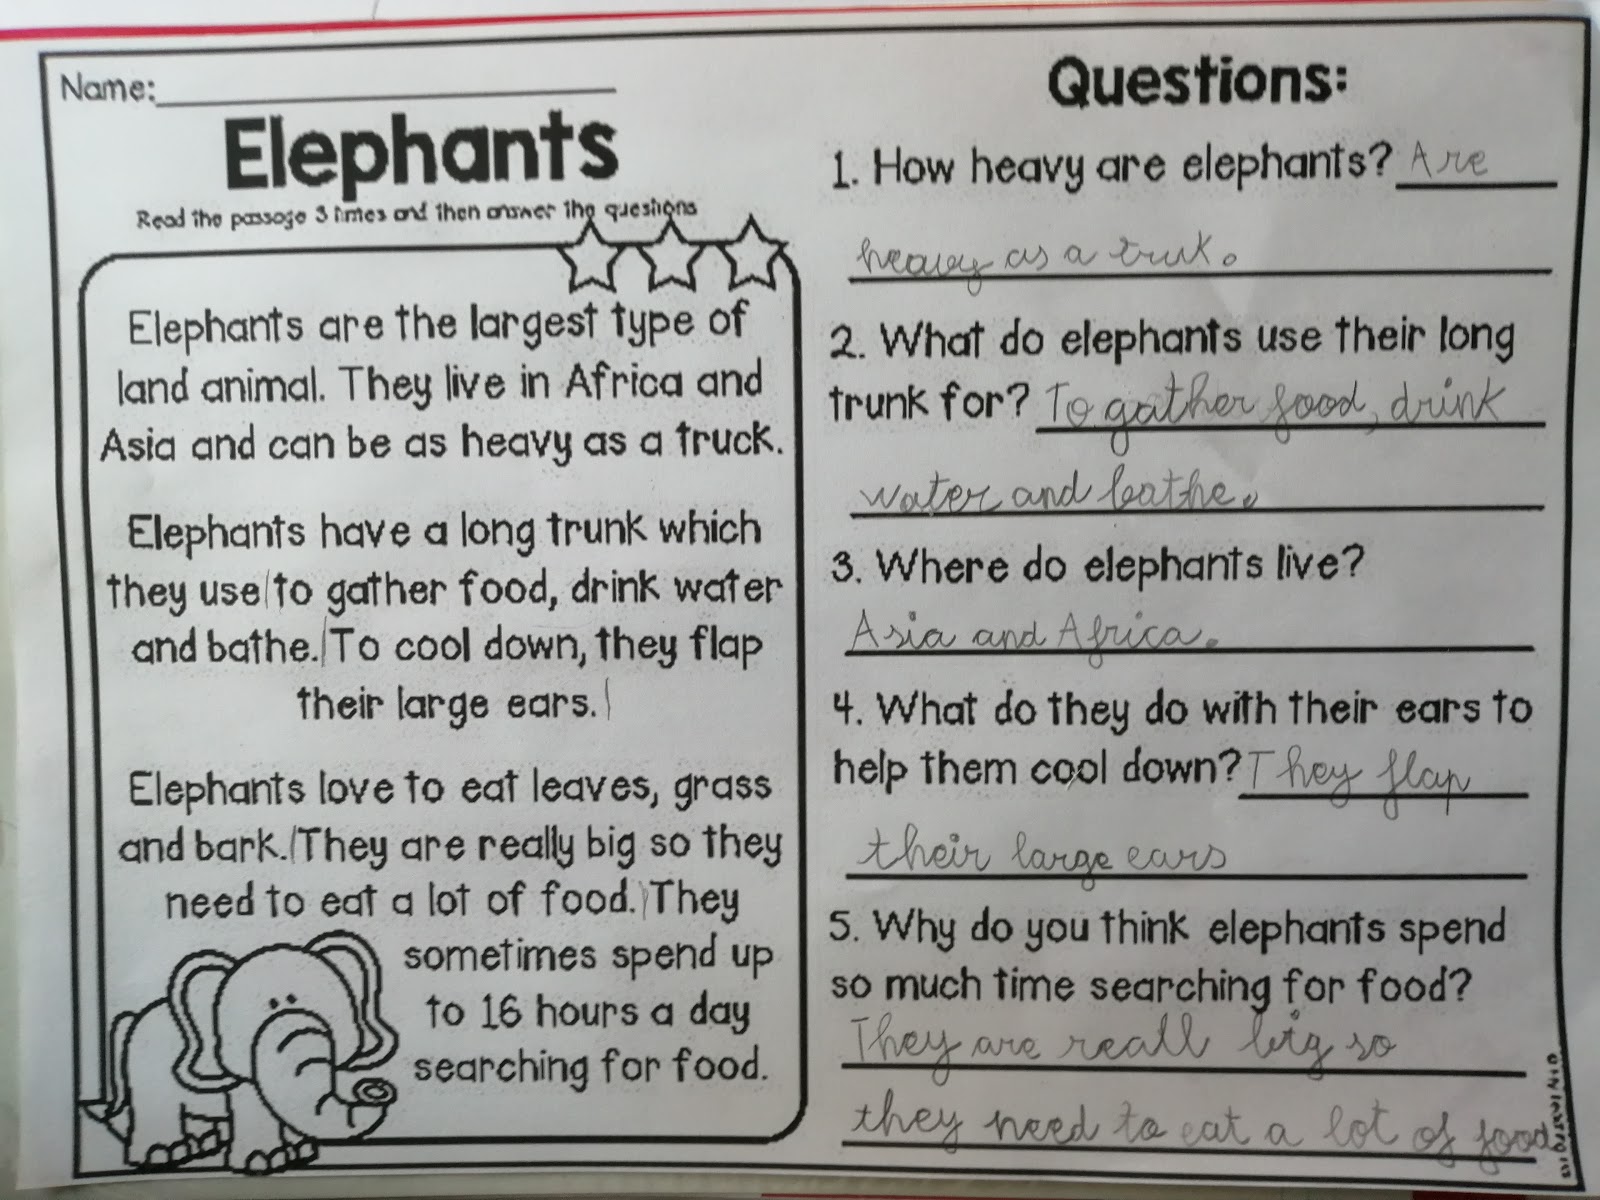 Name:
Elephants
Read the passage 3 times and then answer the questions
Elephants are the largest type of
land animal. They live in Africa and
Asia and can be as heavy as a truck.
Elephants have a long trunk which
they use to gather food, drink water
and bathe. To cool down, they flap
their large ears.
Elephants love to eat leaves, grass
and bark. They are really big so they
need to eat a lot of food. They
sometimes spend up
to 16 hours a day
searching for food.
Questions:
1. How heavy are elephants? Are
heavy as a truk.
2. What do elephants use their long
trunk for? To gather food, drink
water and bathe.
3. Where do elephants live?
Asia and Africa.
4. What do they do with their ears to
help them cool down? They flap
their large ears
5. Why do you think elephants spend
so much time searching for food?
They are reall big so
they need to eat a lot of food